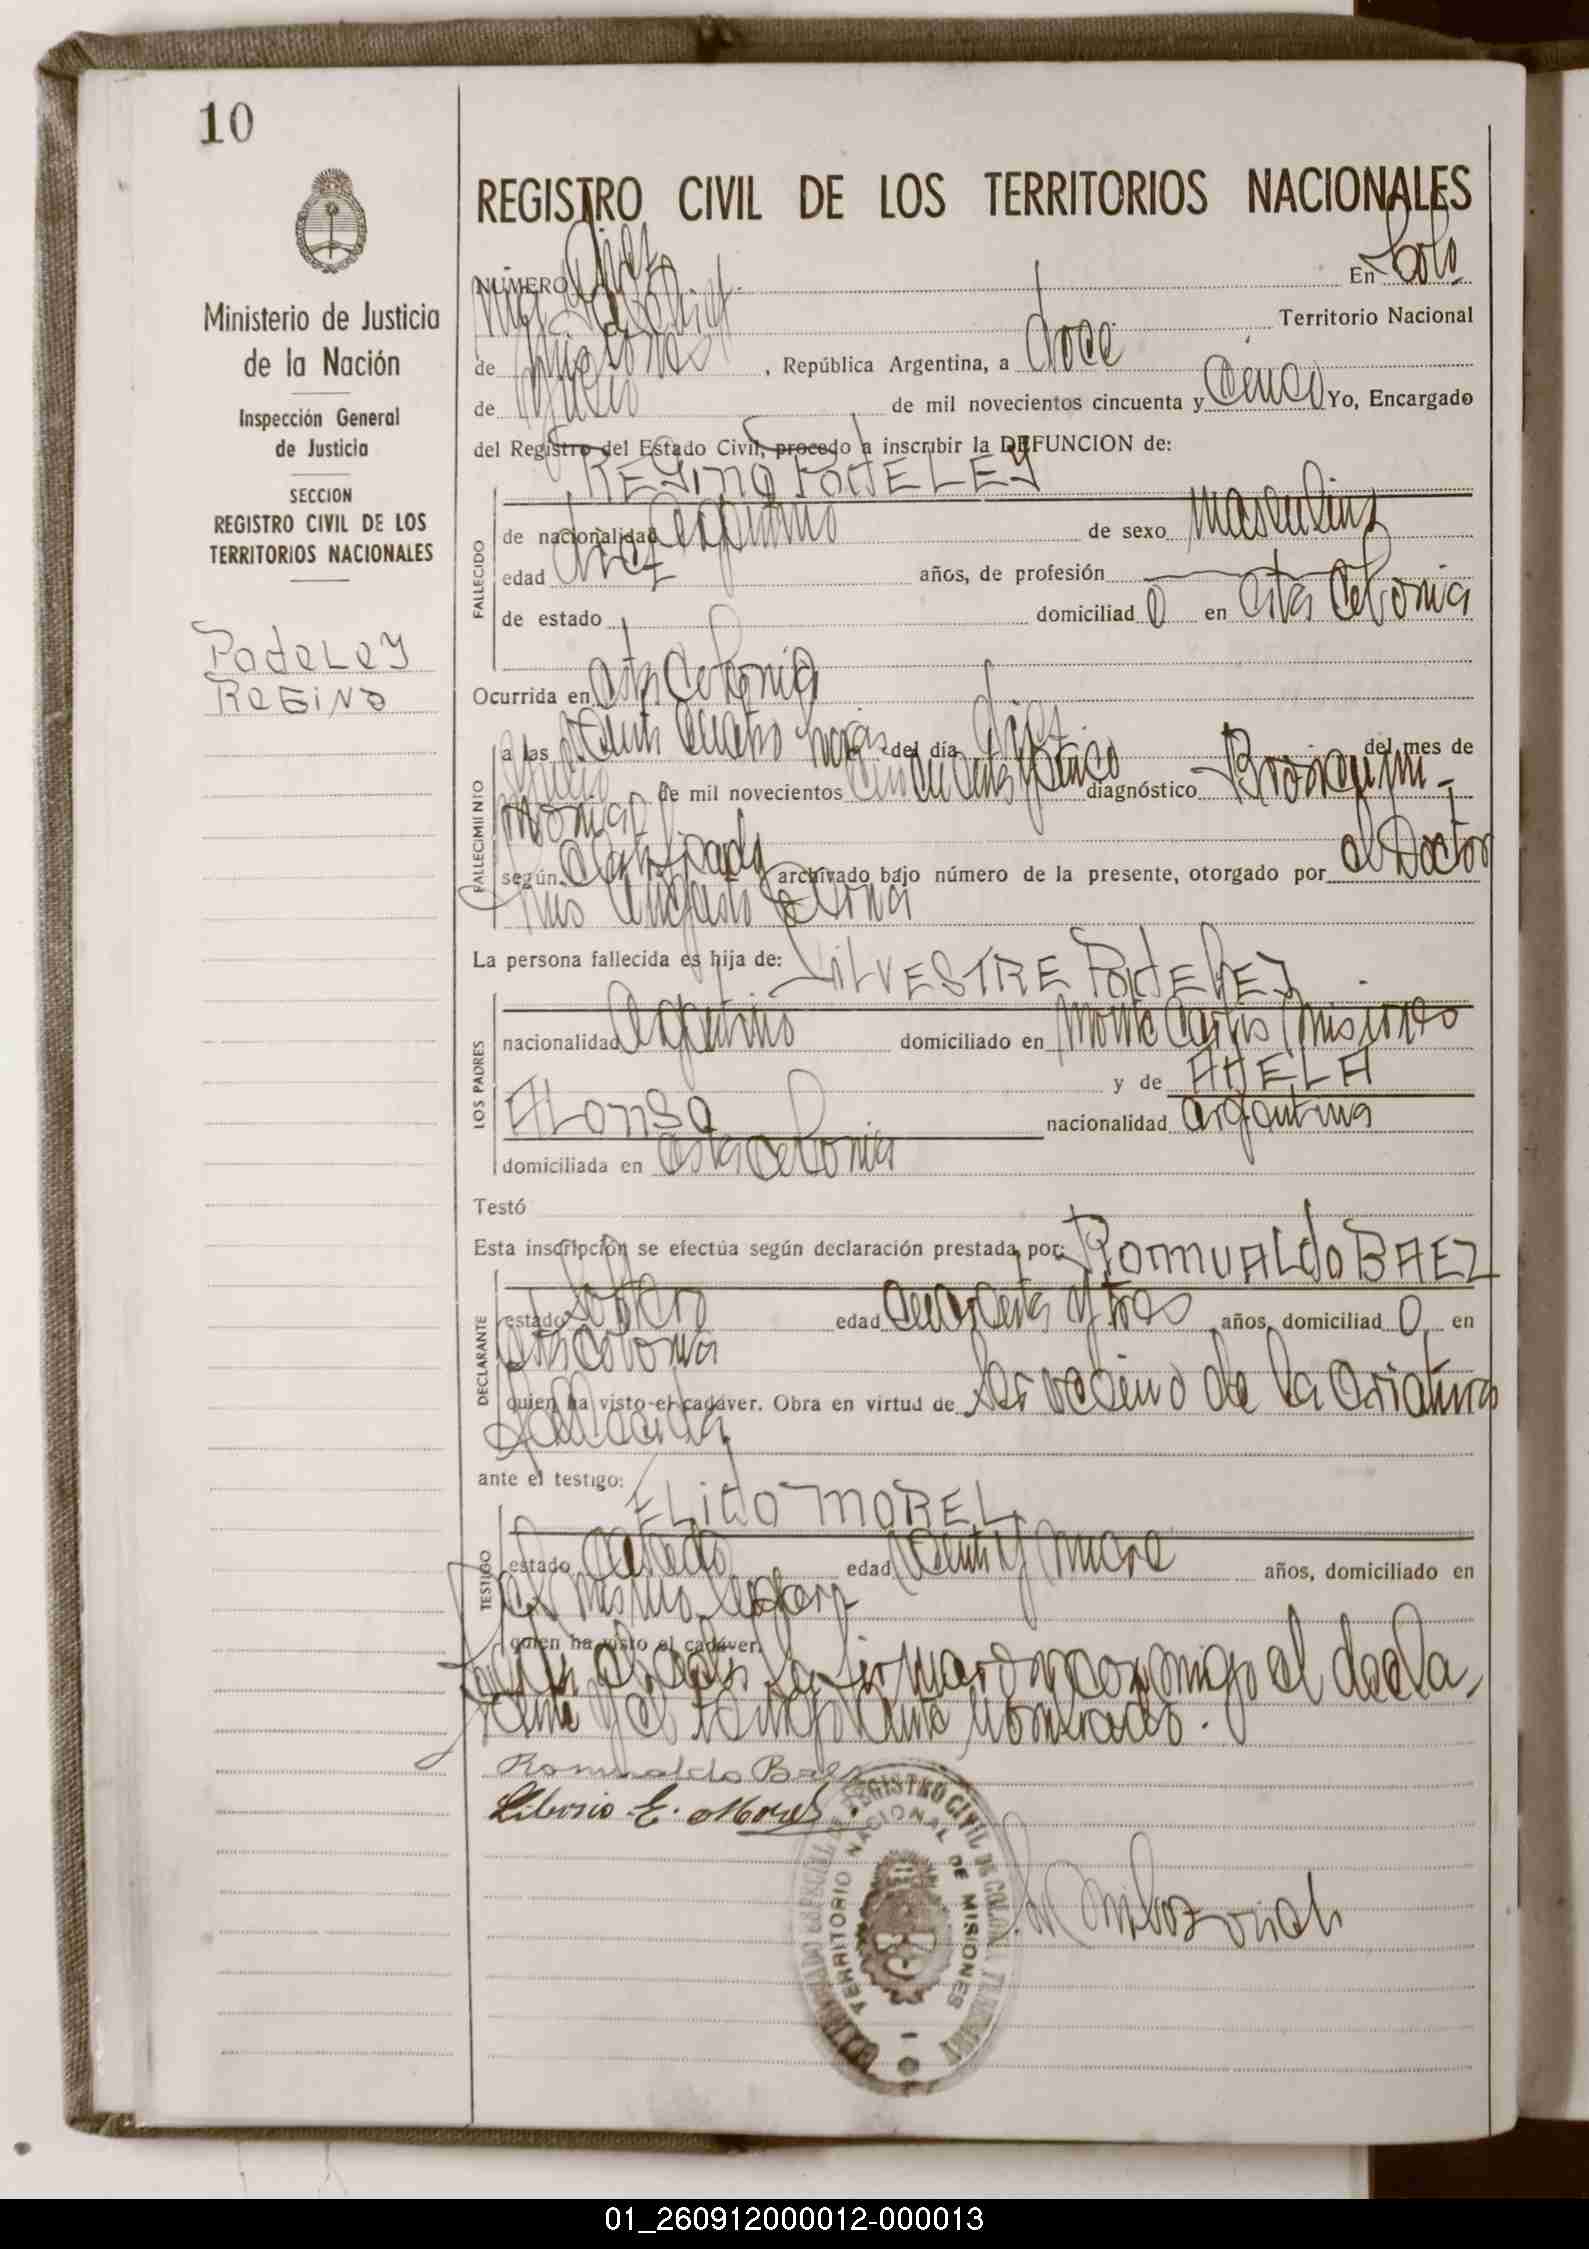 10
Ministerio de Justicia
de la Nación
Inspección General
de Justicia
SECCION
REGISTRO CIVIL DE LOS
TERRITORIOS NACIONALES
Podeley
Regino
REGISTRO CIVIL DE LOS TERRITORIOS NACIONALES
NÚMERO Diez En Colo
nia Territorio Nacional
de Misiones, República Argentina, a doce
de de mil novecientos cincuenta y cinco Yo, Encargado
del Registro del Estado Civil, procedo a inscribir la DEFUNCION de:
REGINO PODELEY
FALLECIDO
de nacionalidad argentino de sexo masculino
edad años, de profesión
de estado domiciliado en esta colonia
Ocurrida en esta colonia
FALLECIMIENTO
a las veinti cuatro horas del día diez del mes de
de mil novecientos cincuenta y cinco diagnóstico
según certificado archivado bajo número de la presente, otorgado por el Doctor
Luis Augusto
La persona fallecida es hija de: SILVESTRE PODELEY
LOS PADRES
nacionalidad argentino domiciliado en Monte Carlo Misiones
y de ADELA
ALONSO nacionalidad argentina
domiciliada en esta colonia
Testó
Esta inscripción se efectúa según declaración prestada por: ROMUALDO BAEZ
DECLARANTE
estado soltero edad cuarenta y tres años, domiciliado en
esta colonia
quien ha visto el cadáver. Obra en virtud de ser vecino de la criatura
fallecida
ante el testigo: ELIDO MOREL
TESTIGO
estado casado edad veinti y nueve años, domiciliado en
el mismo lugar
quien ha visto el cadáver.
Leida el acta la firmaron conmigo el decla
rante y el testigo ante nombrado.
Romualdo Baez
Liborio E. Morel
REGISTRO CIVIL DE
TERRITORIO NACIONAL DE MISIONES
01_260912000012-000013